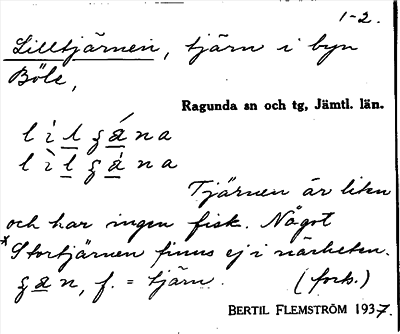 1-2.
Lilltjärnen, tjärn i byn
Böle,
Ragunda sn och tg, Jämtl. län.
Tjärnen är liten
och har ingen fisk. Något
*Stortjärnen finns ej i närheten.
f. = tjärn. (forts.)
BERTIL FLEMSTRÖM 1937.